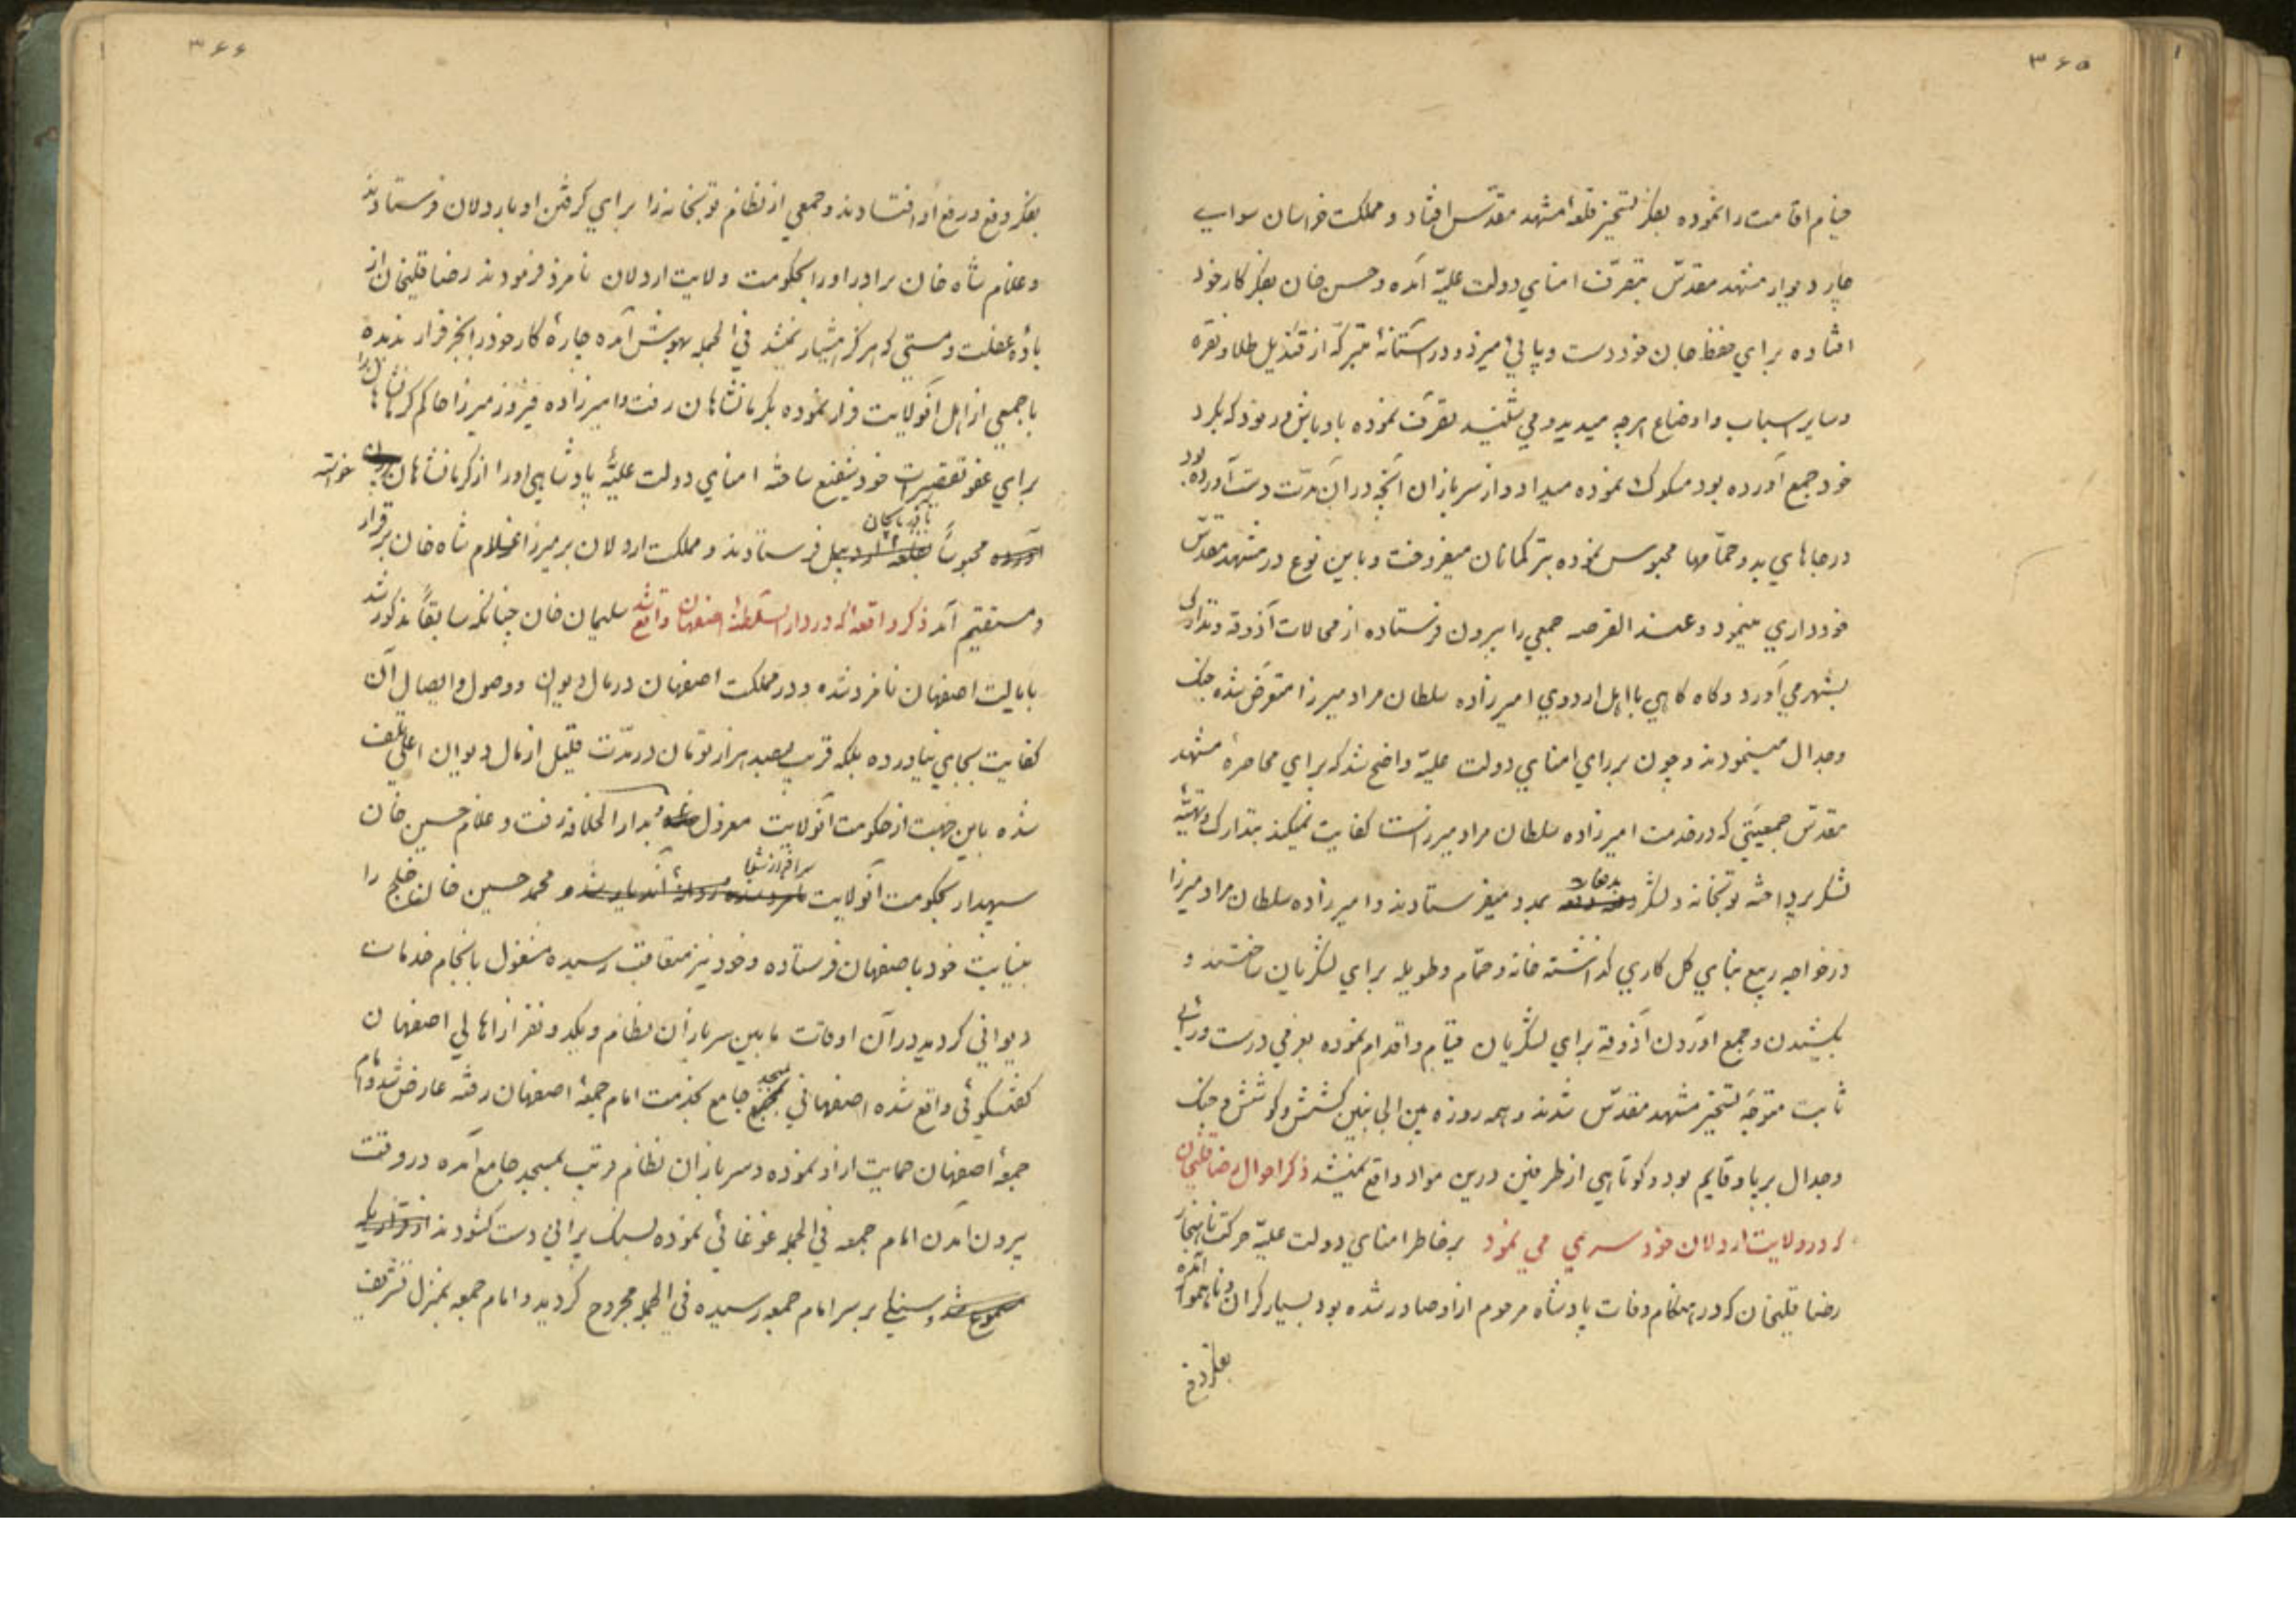 ۳۶۵
خیام اقامت را نموده بفکر تسخیر قلعهٔ مشهد مقدّس افتاد و مملکت خراسان سوای
چار دیوار مشهد مقدّس بتصرّف امنای دولت علیّه آمده و حسن خان بفکر کار خود
افتاده برای حفظ جان خود دست و پایی میزد و در آستانهٔ متبرکّه از قندیل طلا و نقره
و سایر اسباب و اوضاع هرچه میدید و می شنید تصرّف نموده باوباش و رنود که بگرد
خود جمع آورده بود مسکوک نموده میداد و از سربازان آنچه در آن مدّت دست آورده بود
در جاهای بد و حمّامها محبوس نموده بترکمانان میفروخت و باین نوع در مشهد مقدّس
خودداری مینمود و عند الفرصه جمعی را بیرون فرستاده از محالات آذوقه و تدارکی
بشهر می آورد و گاه گاهی با اهل اردوی امیرزاده سلطان مراد میرزا متعرّض شده جنک
و جدال مینمودند و چون بر رای امنای دولت علیّه واضح شد که برای محاصرهٔ مشهد
مقدّس جمعیّتی که در خدمت امیرزاده سلطان مراد میرزا است کفایت نمیکند بتدارک و تهیّهٔ
لشکر پرداخته توپخانه و لشکر بدفعات بمدد میفرستادند و امیرزاده سلطان مراد میرزا
در خواجه ربیع بنای کل کاری گذاشته خانه و حمّام و طویله برای لشکریان ساختند و
بکشیدن و جمع آوردن آذوقه برای لشکریان قیام و اقدام نموده بعزمی درست و رائی
ثابت متوجّه تسخیر مشهد مقدّس شدند و همه روزه بین الجانبین کشش و کوشش و جنک
و جدال برپا و قایم بود و کوتاهی از طرفین درین مواد واقع نمیشد ذکر احوال رضاقلیخان
که در ولایت اردلان خودسری می نمود بر خاطر امنای دولت علیّه حرکت ناهنجار
رضا قلیخان که در هنگام وفات پادشاه مرحوم از او صادر شده بود بسیار گران و ناهموار آمده
بفکر دفع
۳۶۶
بفکر دفع و رفع او افتادند و جمعی از نظام و توپخانه را برای گرفتن او باردلان فرستادند
و غلام شاه خان برادر او را بحکومت ولایت اردلان نامزد فرمودند رضا قلیخان از
بادهٔ غفلت و مستی که هرگز هشیار نمیشد فی الجمله بهوش آمده چارهٔ کار خود را بجز فرار ندیده
با جمعی از اهل آنولایت فرار نموده بکرمانشاهان رفت و امیرزاده فیروز میرزا حاکم کرمانشاهان را
برای عفو تقصیرات خود شفیع ساخته امنای دولت علیّهٔ پادشاهی او را از کرمانشاهان خواسته
آورده محبوساً بقلعهٔ اردبیل باذربایجان فرستادند و مملکت اردلان بر میرزا غلام شاه خان برقرار
و مستقیم آمد ذکر واقعهٔ که در دار السلطنهٔ اصفهان واقع شد سلیمان خان چنانکه سابقاً مذکور شد
بایالت اصفهان نامزد شده و در مملکت اصفهان در مال دیوان و وصول و ایصال آن
کفایت بجای نیاورده بلکه قریب بصد هزار تومان در مدّت قلیل از مال دیوان اعلی تلف
شده باین جهت از حکومت آنولایت معزول بدار الخلافه رفت و غلام حسین خان
سپهدار بحکومت آنولایت سرافراز و محمد حسین خان خلج را
بنیابت خود باصفهان فرستاده و خود نیز متعاقب رسیده مشغول بانجام خدمات
دیوانی گردید در آن اوقات مابین سربازان نظام و یکدو نفر از اهالی اصفهان
گفتگوئی واقع شده اصفهانی بمسجد جامع بخدمت امام جمعهٔ اصفهان رفته عارض شد و امام
جمعهٔ اصفهان حمایت از او نموده و سربازان نظام مرتب بمسجد جامع آمده در وقت
بیرون آمدن امام جمعه فی الجمله غوغائی نموده بسنک پرانی دست گشودند
و سنگی بر سر امام جمعه رسیده فی الجمله مجروح گردید و امام جمعه بمنزل تشریف